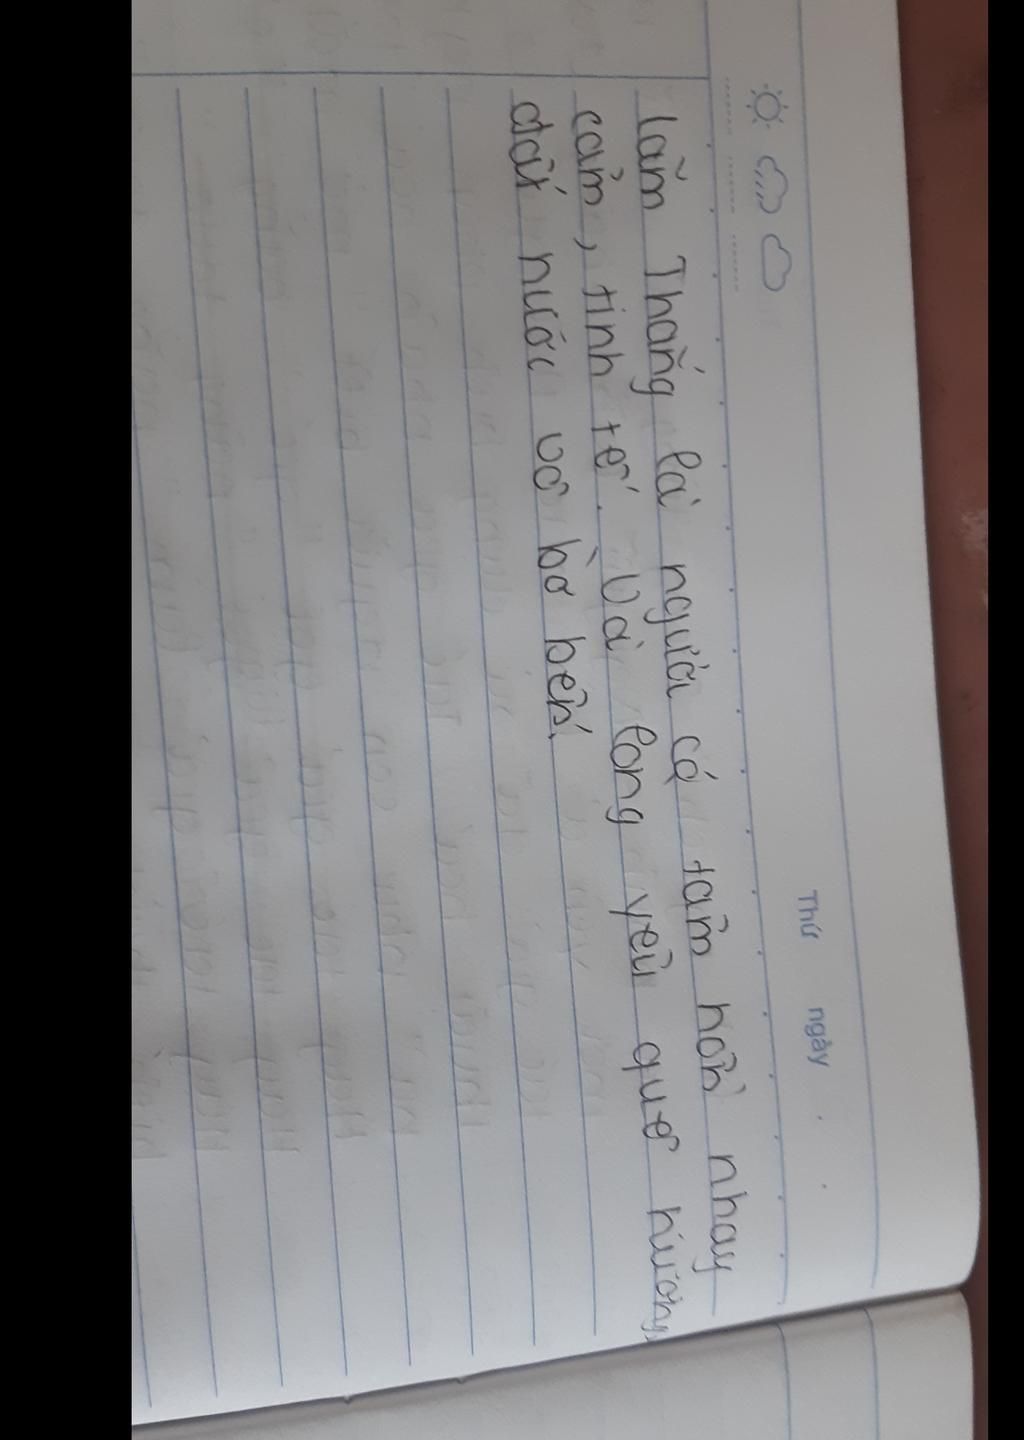 Thứ ngày
lãm Thắng là người có tâm hồn nhạy
cảm, tinh tế. Và lòng yêu quê hương,
đất nước vô bờ bến.